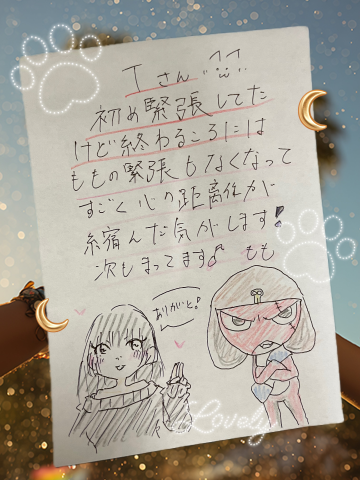 Tさん
初め緊張してた
けど終わるころには
ももの緊張もなくなって
すごく心の距離後が
縮んだ気がします!
次もまってます♪ もも
ありがと!
Lovely